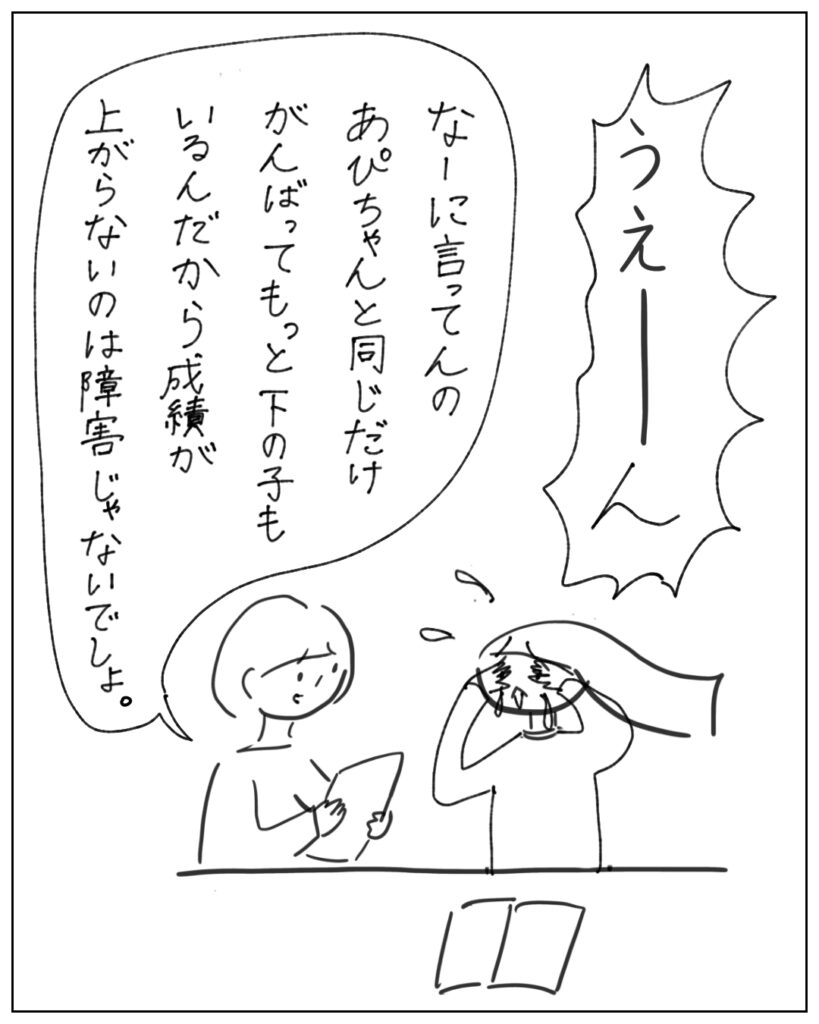 うえーーん
なーに言ってんの
あぴちゃんと同じだけ
がんばってもっと下の子も
いるんだから成績が
上がらないのは障害じゃないでしょ。